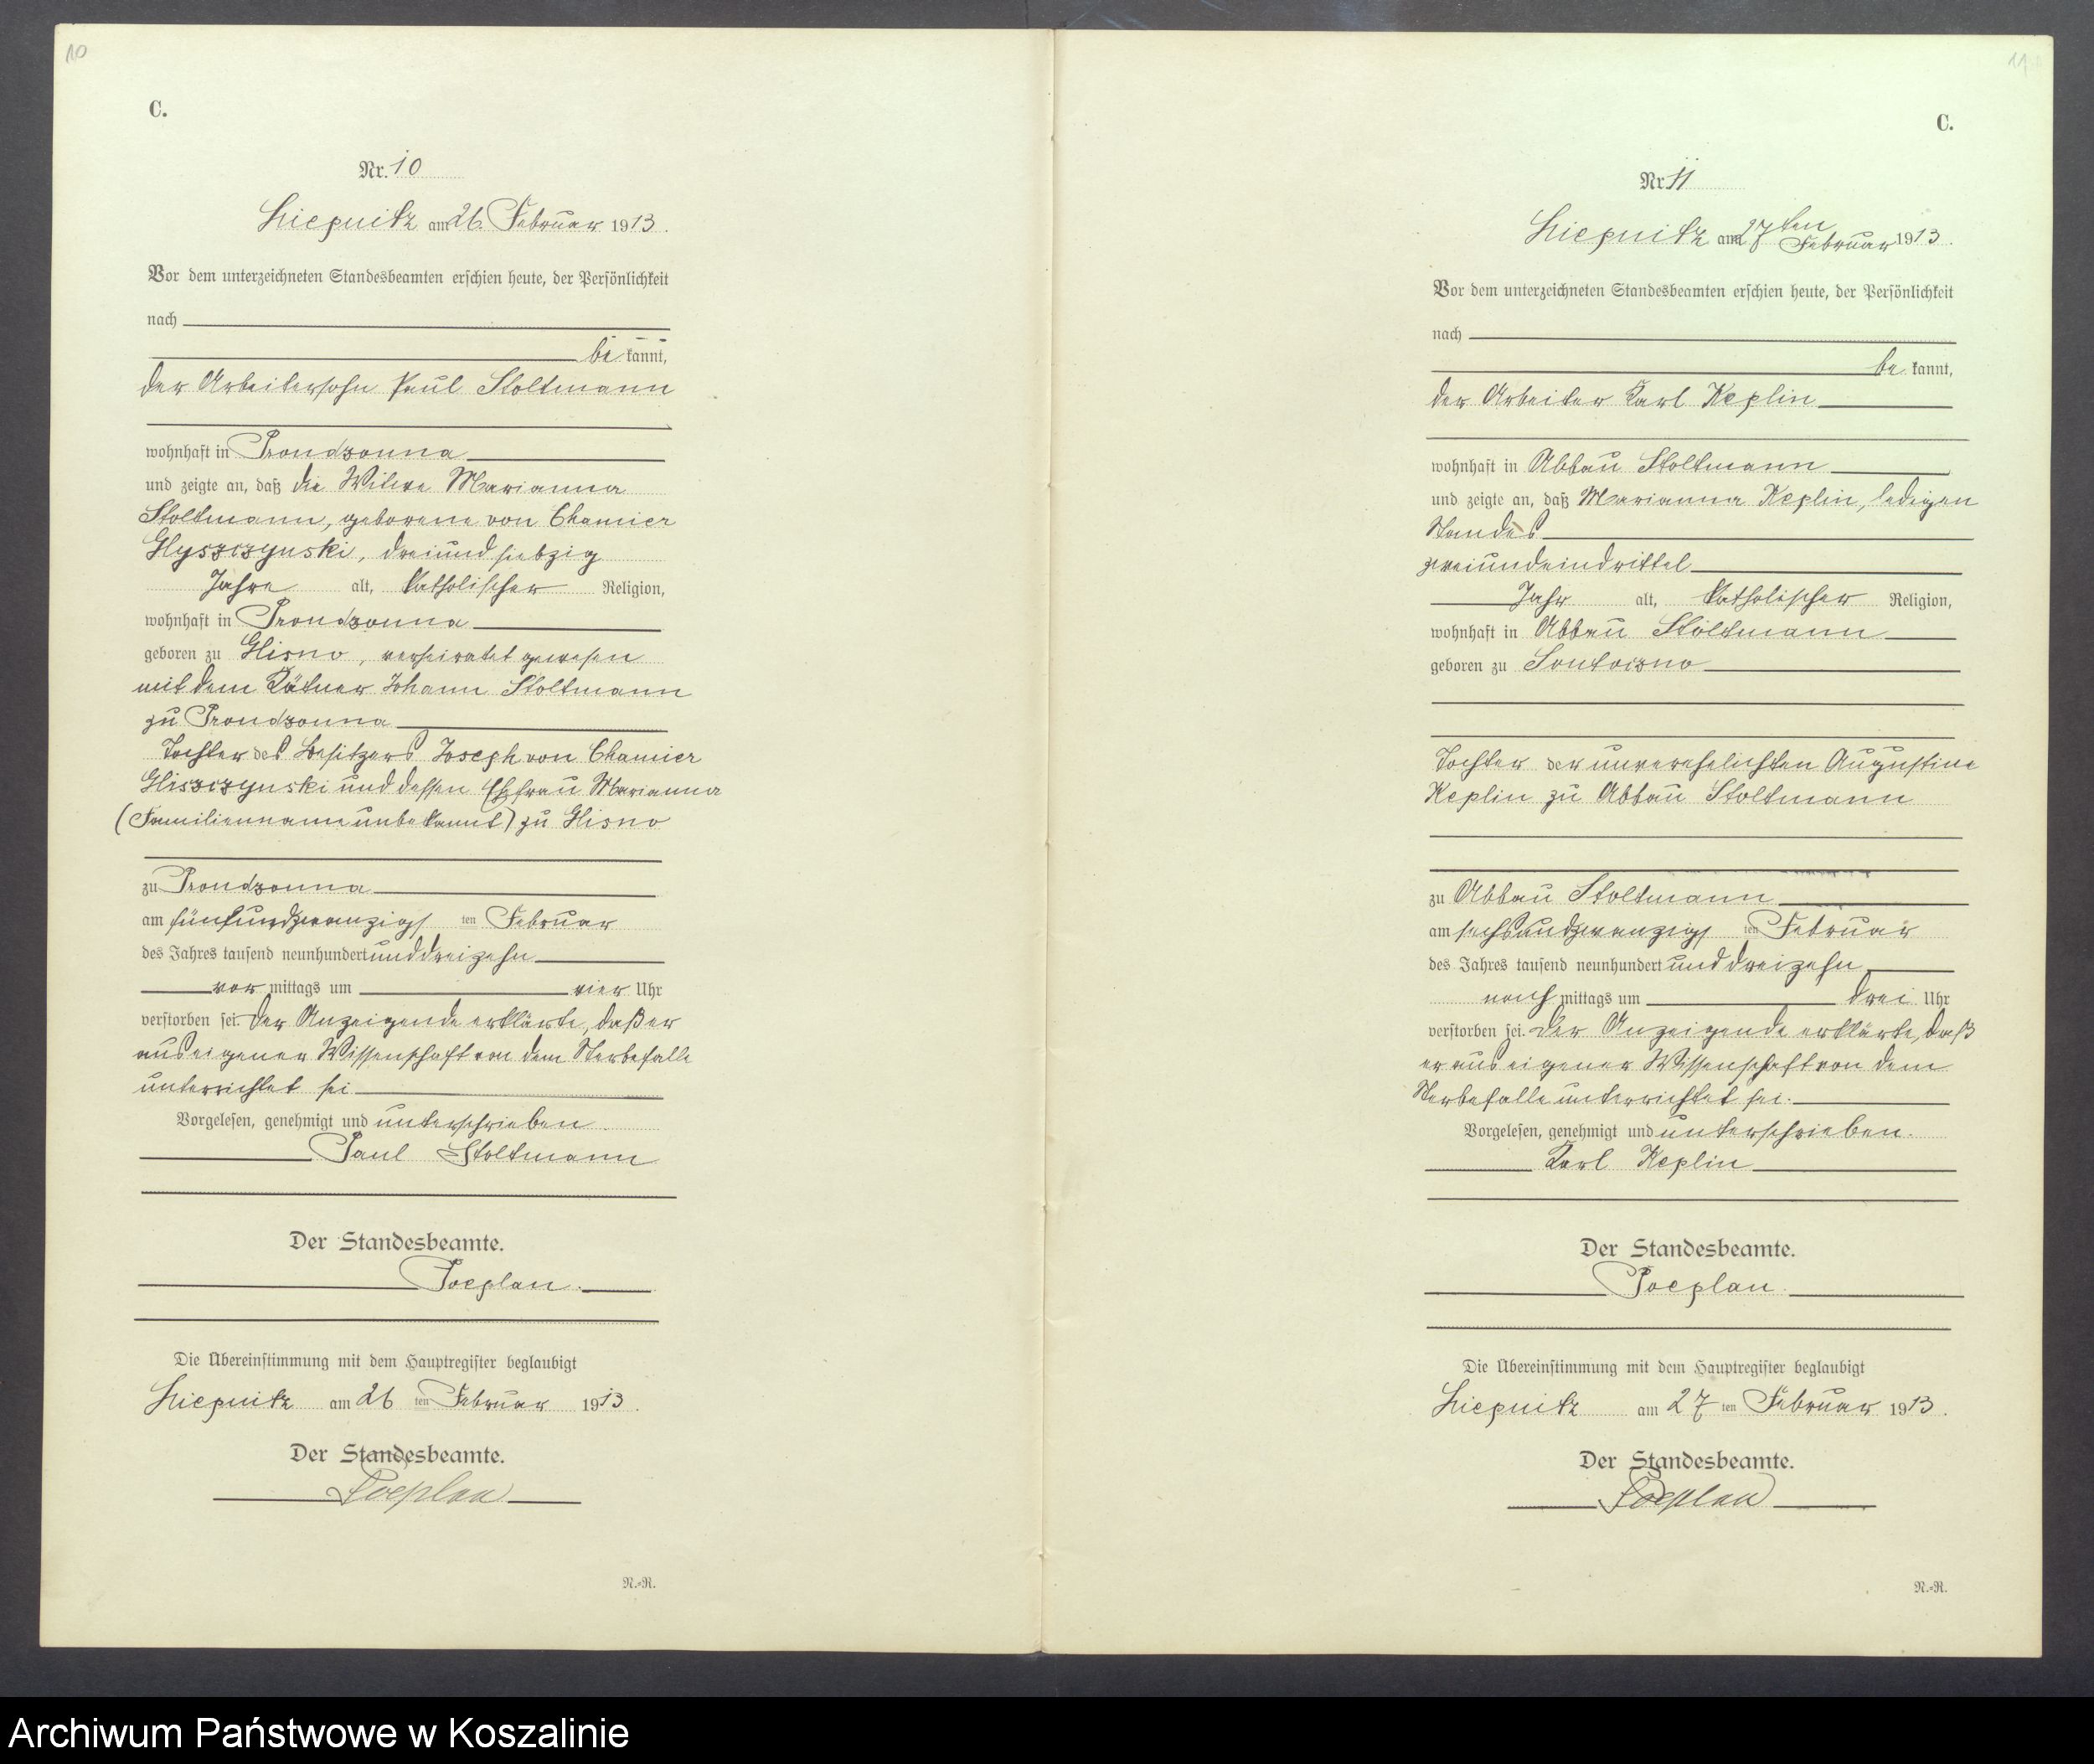 10
C.
Nr. 10
Liepnitz am 26. Februar 1913.
Vor dem unterzeichneten Standesbeamten erschien heute, der Persönlichkeit
nach
be kannt,
der Arbeitersohn Paul Stoltmann
wohnhaft in Prondzonna
und zeigte an, daß die Witwe Marianna
Stoltmann, geborene von Chamier
Glyszczynski, dreiundsiebzig
Jahre alt, katholischer Religion,
wohnhaft in Prondzonna
geboren zu Glisno, verheiratet gewesen
mit dem Kätner Johann Stoltmann
zu Prondzonna
Tochter des Besitzers Joseph von Chamier
Gliszczynski und dessen Ehefrau Marianna
(Familienname unbekannt) zu Glisno
zu Prondzonna
am fünfundzwanzigs ten Februar
des Jahres tausend neunhundert und dreizehn
vor mittags um vier Uhr
verstorben sei. Der Anzeigende erklärte, daß er
aus eigener Wissenschaft von dem Sterbefalle
unterrichtet sei
Vorgelesen, genehmigt und unterschrieben.
Paul Stoltmann
Der Standesbeamte.
Poeplau.
Die Übereinstimmung mit dem Hauptregister beglaubigt
Liepnitz am 26 ten Februar 1913.
Der Standesbeamte.
Poeplau
N.=R.
11
C.
Nr. 11
Liepnitz am 27ten Februar 1913.
Vor dem unterzeichneten Standesbeamten erschien heute, der Persönlichkeit
nach
be kannt,
der Arbeiter Karl Keplin
wohnhaft in Abbau Stoltmann
und zeigte an, daß Marianna Keplin, ledigen
Standes
zweiundeindrittel
Jahr alt, katholischer Religion,
wohnhaft in Abbau Stoltmann
geboren zu
Tochter der unverehelichten Augustine
Keplin zu Abbau Stoltmann
zu Abbau Stoltmann
am sechsundzwanzigs ten Februar
des Jahres tausend neunhundert und dreizehn
nach mittags um drei Uhr
verstorben sei. Der Anzeigende erklärte, daß
er aus eigener Wissenschaft von dem
Sterbefalle unterrichtet sei.
Vorgelesen, genehmigt und unterschrieben.
Karl Keplin
Der Standesbeamte.
Poeplau.
Die Übereinstimmung mit dem Hauptregister beglaubigt
Liepnitz am 27 ten Februar 1913.
Der Standesbeamte.
Poeplau
N.=R.
Archiwum Państwowe w Koszalinie